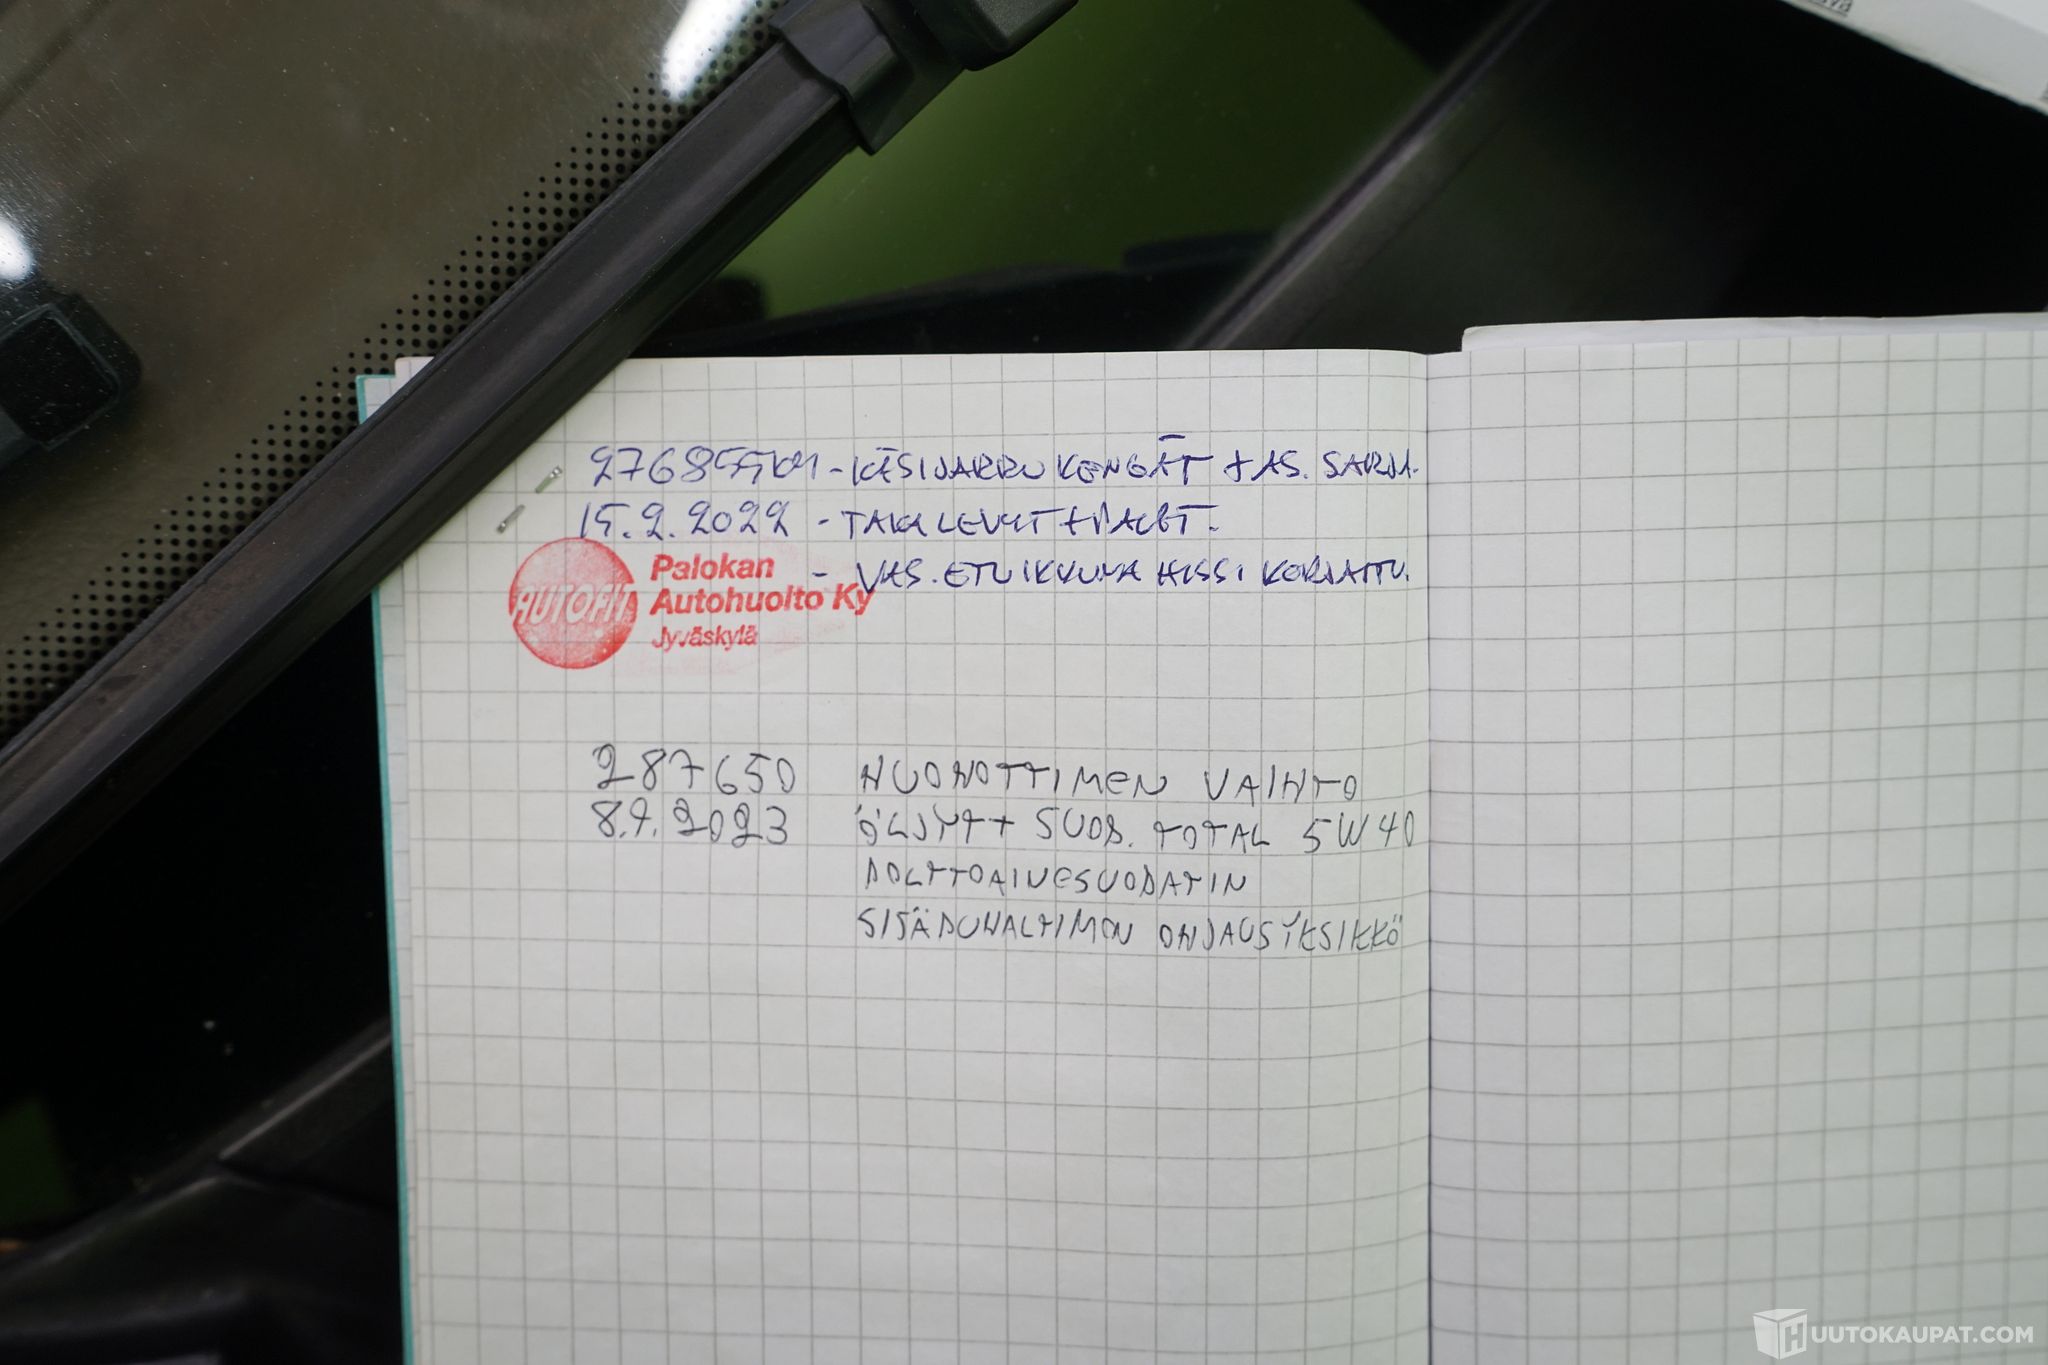 276855KM - KÄSIJARRUKENGÄT + AS. SARJA.
15.2.2022 - TAKALEVYT + PALAT.
- VAS. ETUIKKUNA HISSI KORJATTU.
AUTOFIT
Palokan
Autohuolto Ky
Jyväskylä
287650 HUONOTTIMEN VAIHTO
8.7.2023 ÖLJYT + SUOD. TOTAL 5W40
POLTTOAINESUODATIN
SISÄPUHALTIMEN OHJAUSYKSIKKÖ
HUUTOKAUPAT.COM